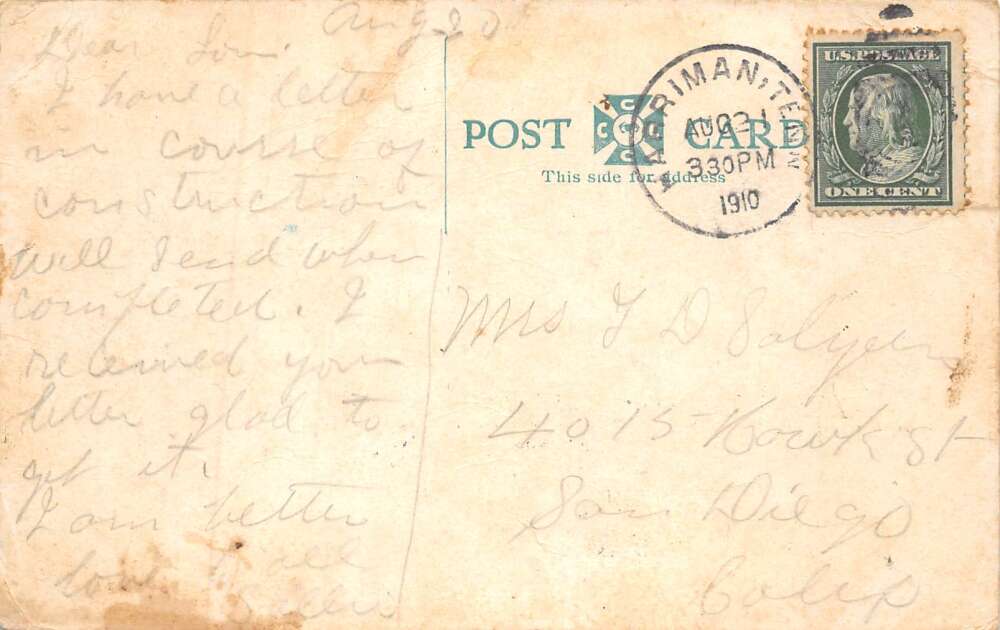 Aug 20
Dear Son.
I have a letter
in course of
construction
will send when
completed. I
received your
letter glad to
get it.
I am better
love all
POST CARD
This side for address
HARRIMAN, TENN
AUG 21
330PM
1910
U.S. POSTAGE
ONE CENT
Mrs T D Salyers
4015 Hawk St
San Diego
Calif